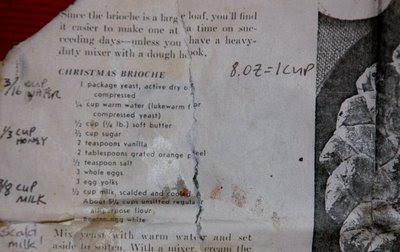 Since the brioche is a large loaf, you'll find
it easier to make one at a time on suc-
ceeding days—unless you have a heavy-
duty mixer with a dough hook.
CHRISTMAS BRIOCHE
8.OZ=1CUP
1 package yeast, active dry or
compressed
3/16 CUP
WATER
¼ cup warm water (lukewarm for
compressed yeast)
½ cup (¼ lb.) soft butter
⅓ CUP
HONEY
⅔ cup sugar
2 teaspoons vanilla
2 tablespoons grated orange peel
½ teaspoon salt
3 whole eggs
3 egg yolks
3/8 CUP
MILK
½ cup milk, scalded and cooled
About 5¼ cups unsifted regular
all-purpose flour
egg white
Scald
milk!
Mix yeast with warm water and set
aside to soften. With a mixer, cream the